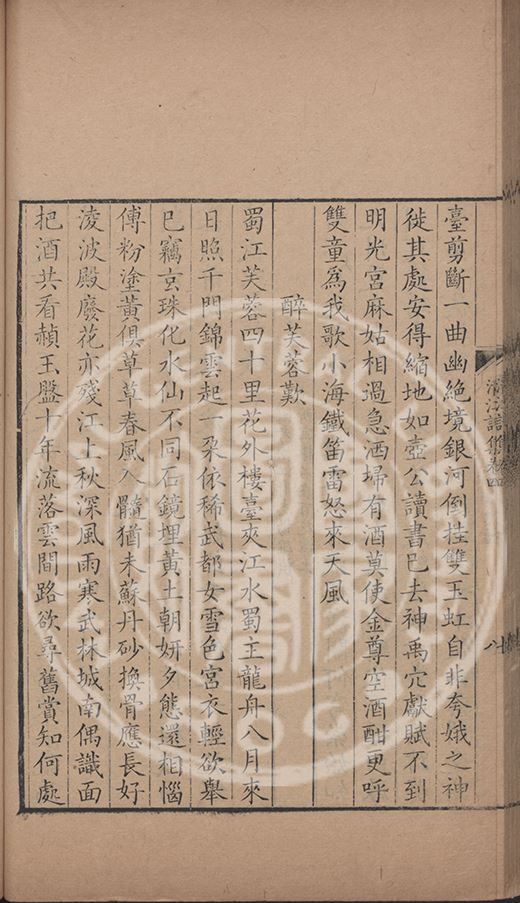 臺剪斷一曲幽絕境銀河倒挂雙玉虹自非夸娥之神
徙其處安得縮地如壺公讀書已去神禹穴獻賦不到
明光宮麻姑相過急洒埽有酒莫使金尊空酒酣更呼
雙童爲我歌小海鐵笛雷怒來天風
醉芙蓉歎
蜀江芙蓉四十里花外樓臺夾江水蜀主龍舟八月來
日照千門錦雲起一朶依稀武都女雪色宮衣輕欲舉
已竊玄珠化水仙不同石鏡埋黃土朝妍夕態還相惱
傅粉塗黃俱草草春風入髓猶未蘇丹砂換骨應長好
淩波殿廢花亦殘江上秋深風雨寒武林城南偶識面
把酒共看赬玉盤十年流落雲間路欲尋舊賞知何處
清江詩集卷四
八